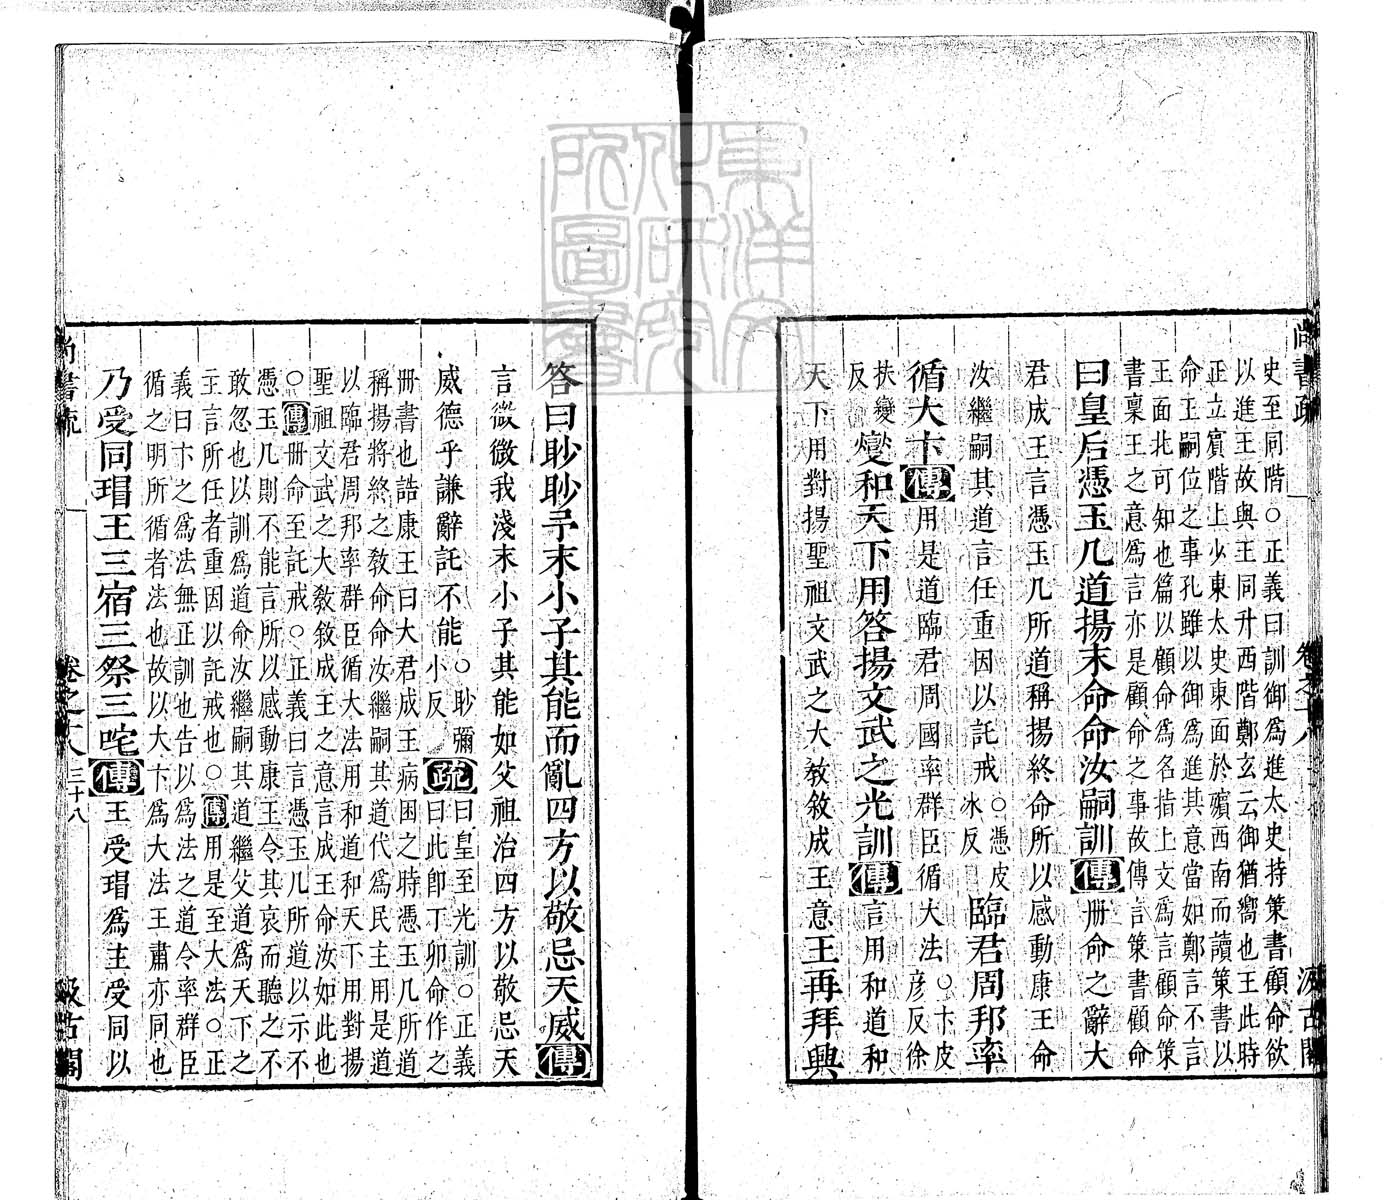 史至同階○正義曰訓御爲進太史持策書顧命欲
以進王故與王同升西階鄭玄云御猶嚮也王此時
正立賓階上少東太史東面於殯西南而讀策書以
命王嗣位之事孔雖以御爲進其意當如鄭言不言
王面北可知也篇以顧命爲名指上文爲言顧命策
書稟王之意爲言亦是顧命之事故傳言策書顧命
曰皇后憑玉几道揚末命命汝嗣訓傳冊命之辭大
君成王言憑玉几所道稱揚終命所以感動康王命
汝繼嗣其道言任重因以託戒○憑皮冰反臨君周邦率
循大卞傳用是道臨君周國率群臣循大法○卞皮彥反徐
扶變反燮和天下用答揚文武之光訓傳言用和道和
天下用對揚聖祖文武之大教敘成王意王再拜興
答曰眇眇予末小子其能而亂四方以敬忌天威傳
言微微我淺末小子其能如父祖治四方以敬忌天
威德乎謙辭託不能○眇彌小反疏曰皇至光訓○正義曰此即丁卯命作之
冊書也誥康王曰大君成王病困之時憑玉几所道
稱揚將終之教命命汝繼嗣其道代爲民主用是道
以臨君周邦率群臣循大法用和道和天下用對揚
聖祖文武之大教敘成王之意言成王命汝如此也
○傳冊命至託戒○正義曰言憑玉几所道以示不
憑玉几則不能言所以感動康王令其哀而聽之不
敢忽也以訓爲道命汝繼嗣其道繼父道爲天下之
主言所任者重因以託戒也○傳用是至大法○正
義曰卞之爲法無正訓也告以爲法之道令率群臣
循之明所循者法也故以大卞爲大法王肅亦同也
乃受同瑁王三宿三祭三咤傳王受瑁爲主受同以
尚書疏 卷之十八 三十八 汲古閣